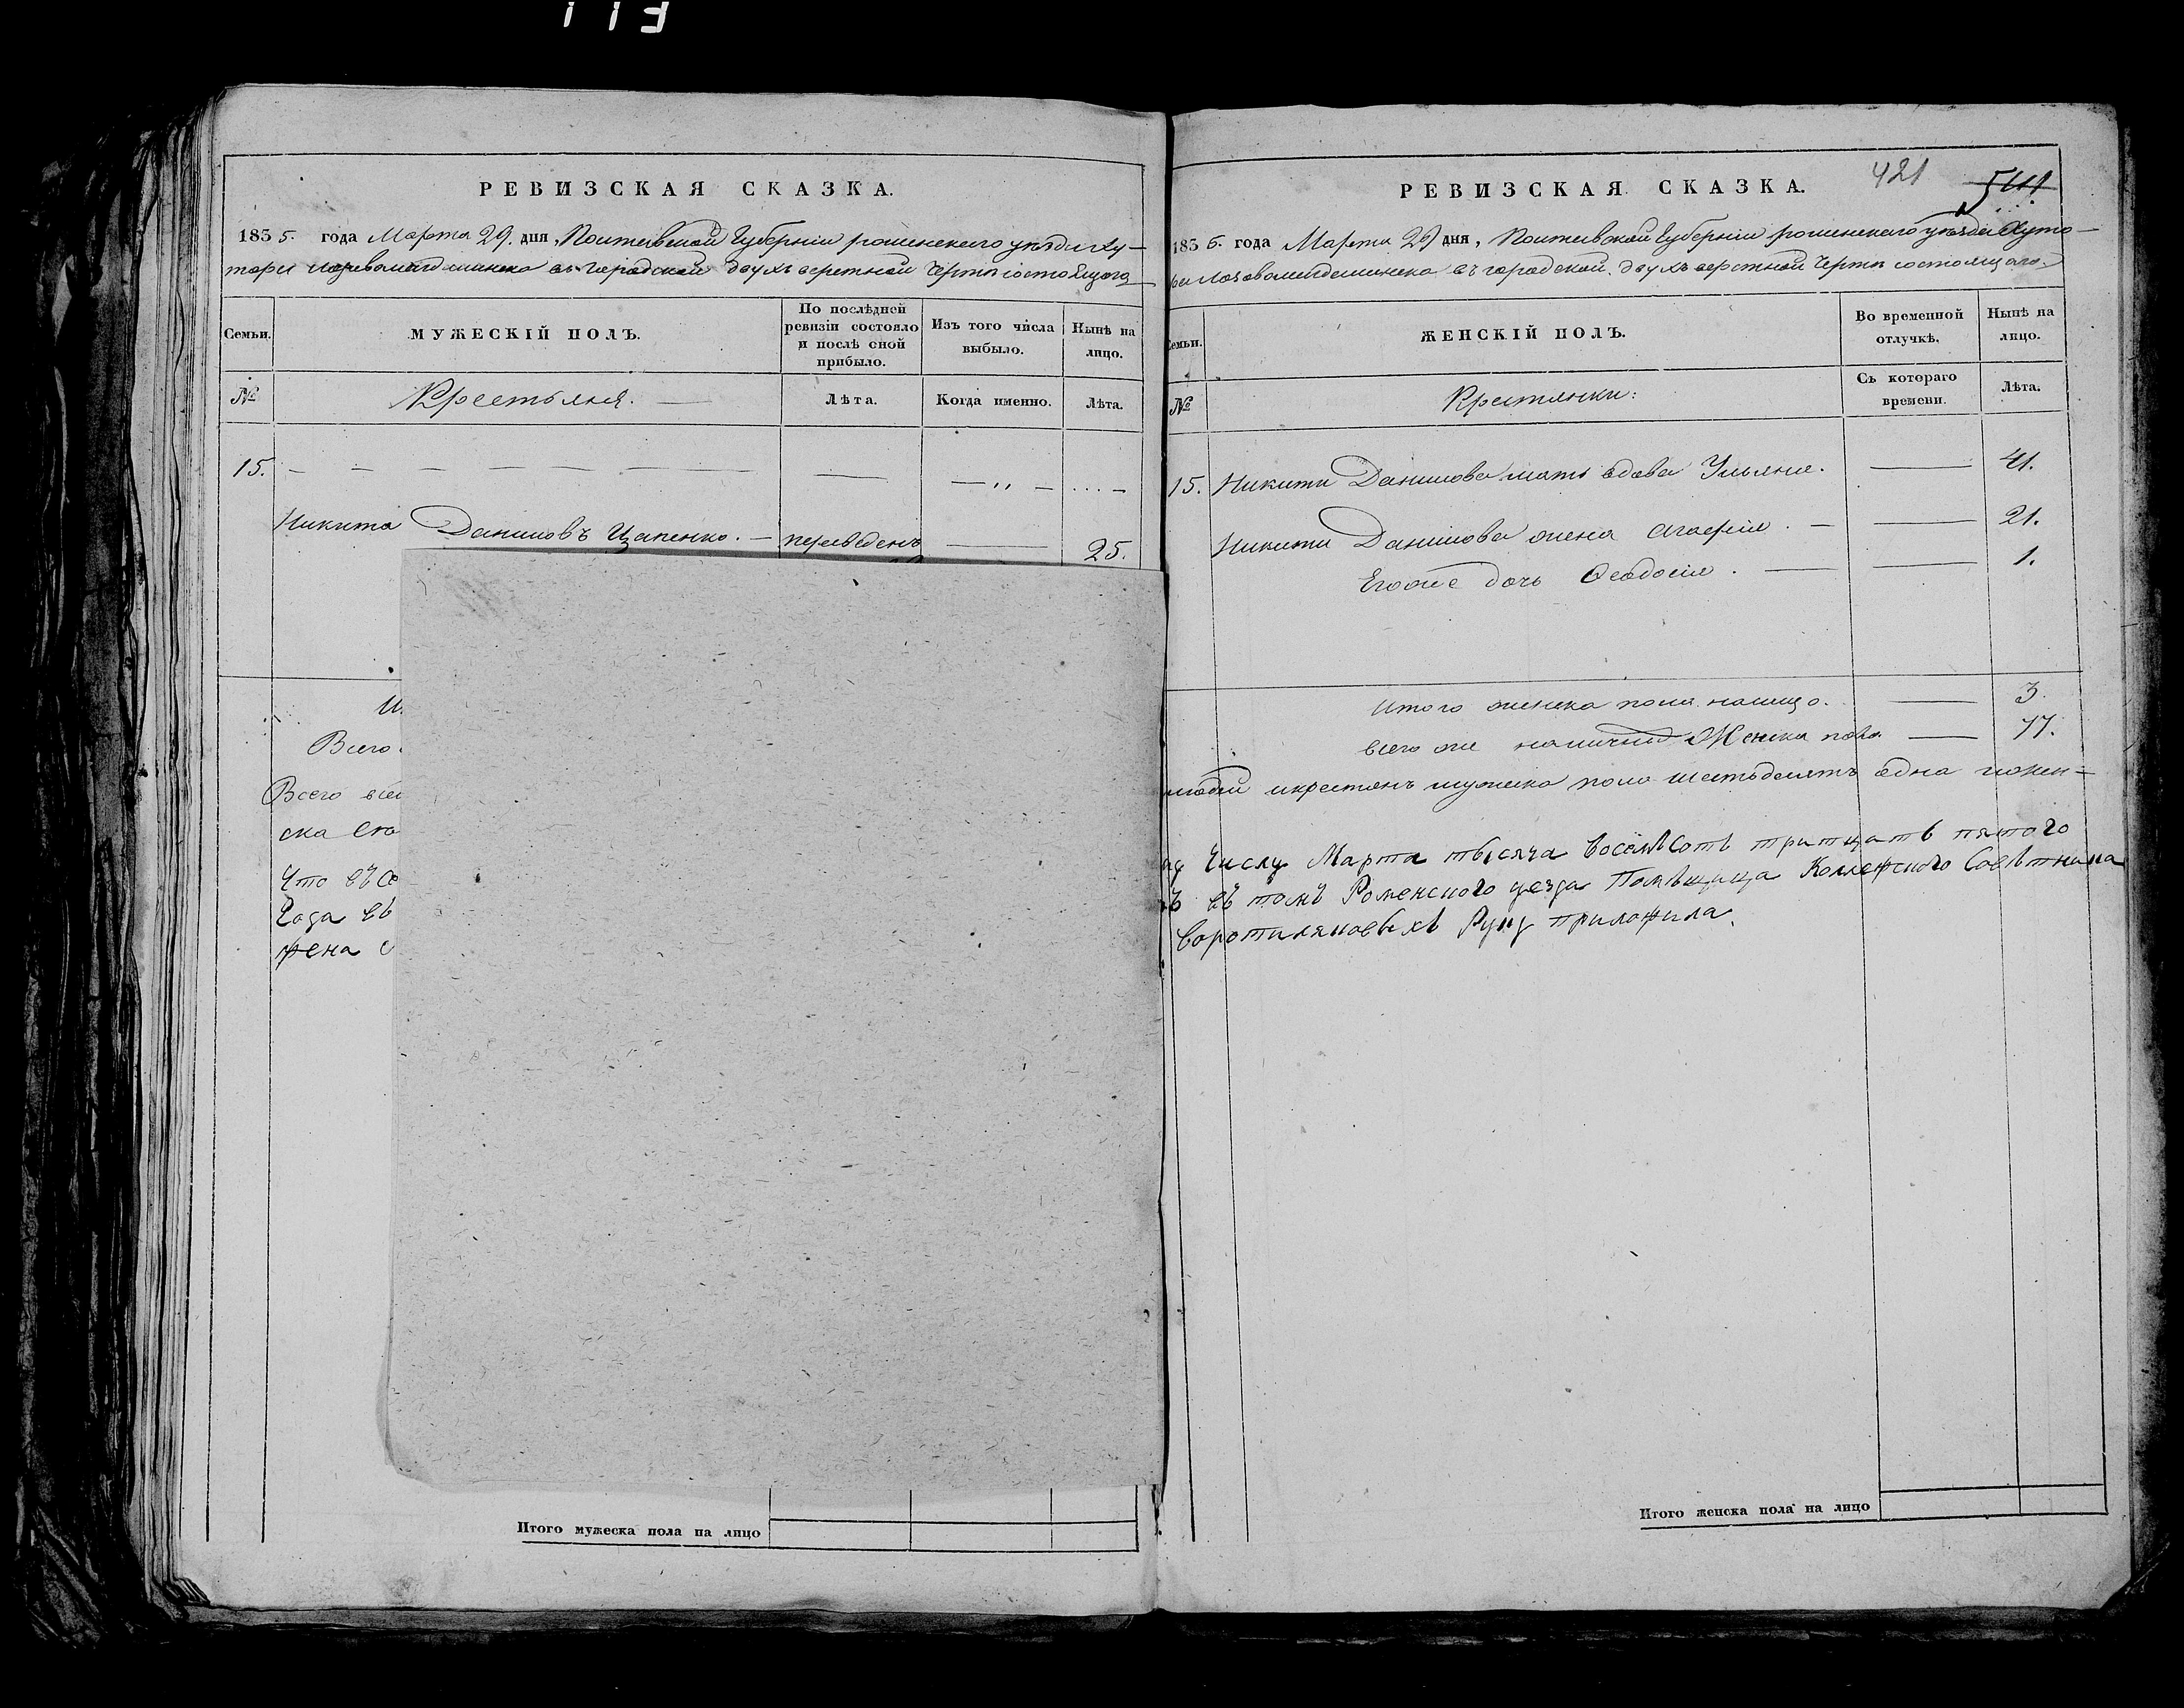 113
РЕВИЗСКАЯ СКАЗКА.
1835. года Марта 29. дня, Полтавской Губерніи роменского уезда ху-
тора въ городской двухъ верстной черте состоящого
Семьи.
МУЖЕСКІЙ ПОЛЪ.
По послѣдней ревизіи состояло и послѣ оной прибыло.
Изъ того числа выбыло.
Нынѣ на лицо.
№
Крестьяня.
Лѣта.
Когда именно.
Лѣта.
15.
Никита Даниловъ Цапенко. переведенъ 25.
Всего
Всего
ска
Что въ
Года въ
жена
Итого мужеска пола на лицо
421 511
РЕВИЗСКАЯ СКАЗКА.
1835. года Марта 29 дня, Полтавской Губерніи роменского уезда Хуто-
въ городской двухъ верстной черте состоящого
Семьи.
ЖЕНСКІЙ ПОЛЪ.
Во временной отлучкѣ.
Нынѣ на лицо.
№
Крестянки:
Съ котораго времени.
Лѣта.
15. Никити Данилова мать вдова Ульяна. 41.
Никити Данилова жена Агафія 21.
Егоже дочь Феодосія. 1.
Итого женска пола налицо. 3.
всего же Женска пола 77.
людей икрестянъ мужеска пола шестьдесятъ одна ижен-
Числу Марта тысяча восемсотъ тритцать пятого
въ томъ Роменского уезда Помѣщица Колежского Совѣтника
руку приложила.
Итого женска пола на лицо